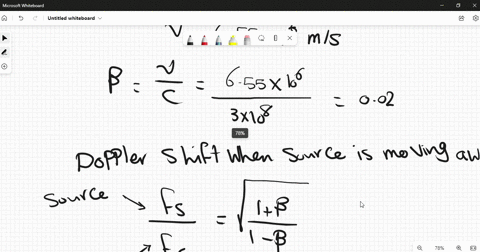 Microsoft Whiteboard
Untitled whiteboard
m/s
β = v/c = 6.55 × 10⁶ / 3×10⁸ = 0.02
78%
Doppler shift when source is moving aw
Source → fs / = √ 1+β / 1-β
78%